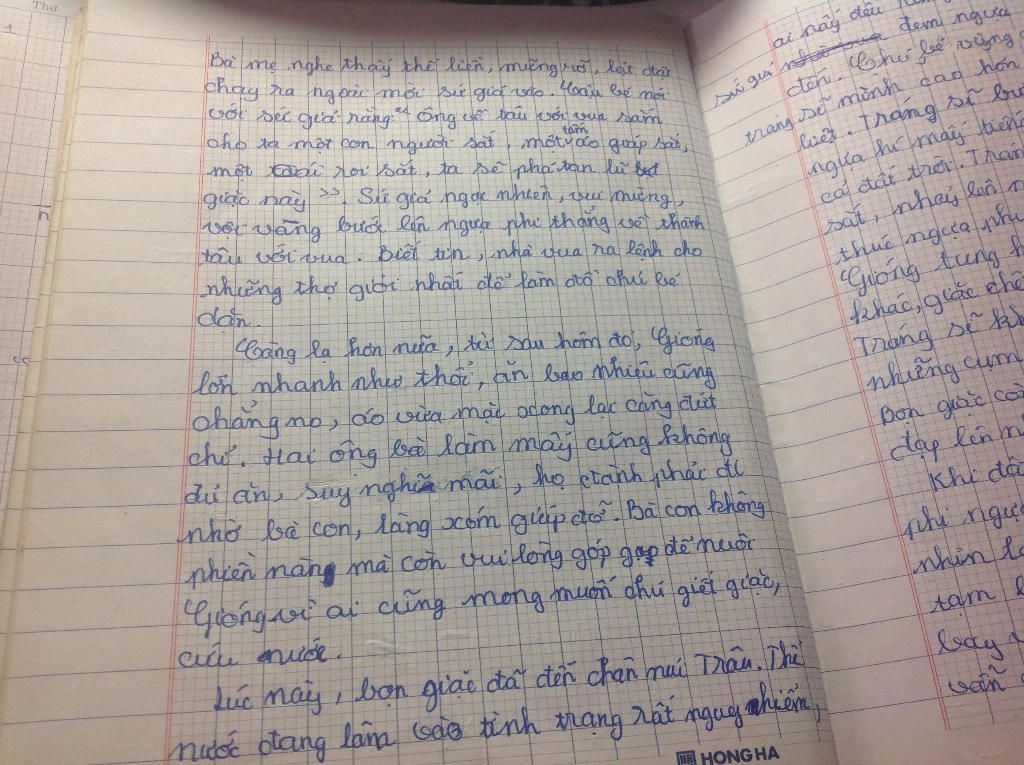 Thứ
Bà mẹ nghe thấy thế liền, mừng rỡ, lật đật
chạy ra ngoài mời sứ giả vào. Hoài bé nói
với sứ giả rằng: "Ông về tâu với vua sắm
cho ta một con người sắt, một tấm áo giáp sắt,
một roi sắt, ta sẽ phá tan lũ
giặc này". Sứ giả ngạc nhiên, vui mừng,
vội vàng bước lên ngựa phi thẳng về thành
tâu với vua. Biết tin, nhà vua ra lệnh cho
những thợ giỏi nhất để làm đồ chú bé
dặn.
Càng lạ hơn nữa, từ sau hôm đó, Gióng
lớn nhanh như thổi, ăn bao nhiêu cũng
chẳng no, áo vừa mặc xong lại căng đứt
chỉ. Hai ông bà làm mấy cũng không
đủ ăn, suy nghĩ mãi, họ đành phải đi
nhờ bà con, làng xóm giúp đỡ. Bà con không
phiền màng mà còn vui lòng góp gạo để nuôi
Gióng vì ai cũng mong muốn chú giết giặc,
cứu nước.
Lúc này, bọn giặc đã đến chân núi Trâu. Thế
nước đang lâm vào tình trạng rất nguy hiểm,
HONG HA
ai nấy đều
sứ giả đem ngựa
đến. Chú bé vùng
tráng sĩ mình cao hơn
liệt. Tráng sĩ
ngựa hí mấy tiếng
cả đất trời. Trán
sắt, nhảy lên
thúc ngựa
Gióng tung
khác, giặc
Tráng sĩ
những cụm
Bọn giặc
đạp lên
Khi
phi ngựa
nhìn
tạm
bay
vẫn